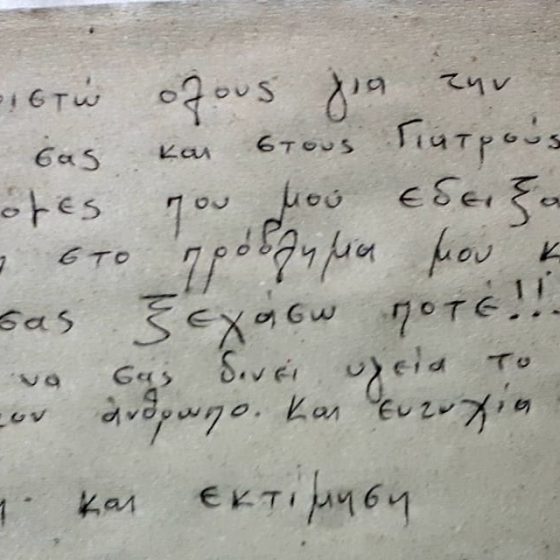 ριστώ ολους για την
σας και στους Γιατρούς
που μου εδειξα
στο πρόβλημα μου κ
σας ξεχάσω ποτέ!!!
να σας δινει υγεία το
τον άνθρωπο. Και ευτυχία
και εκτίμηση